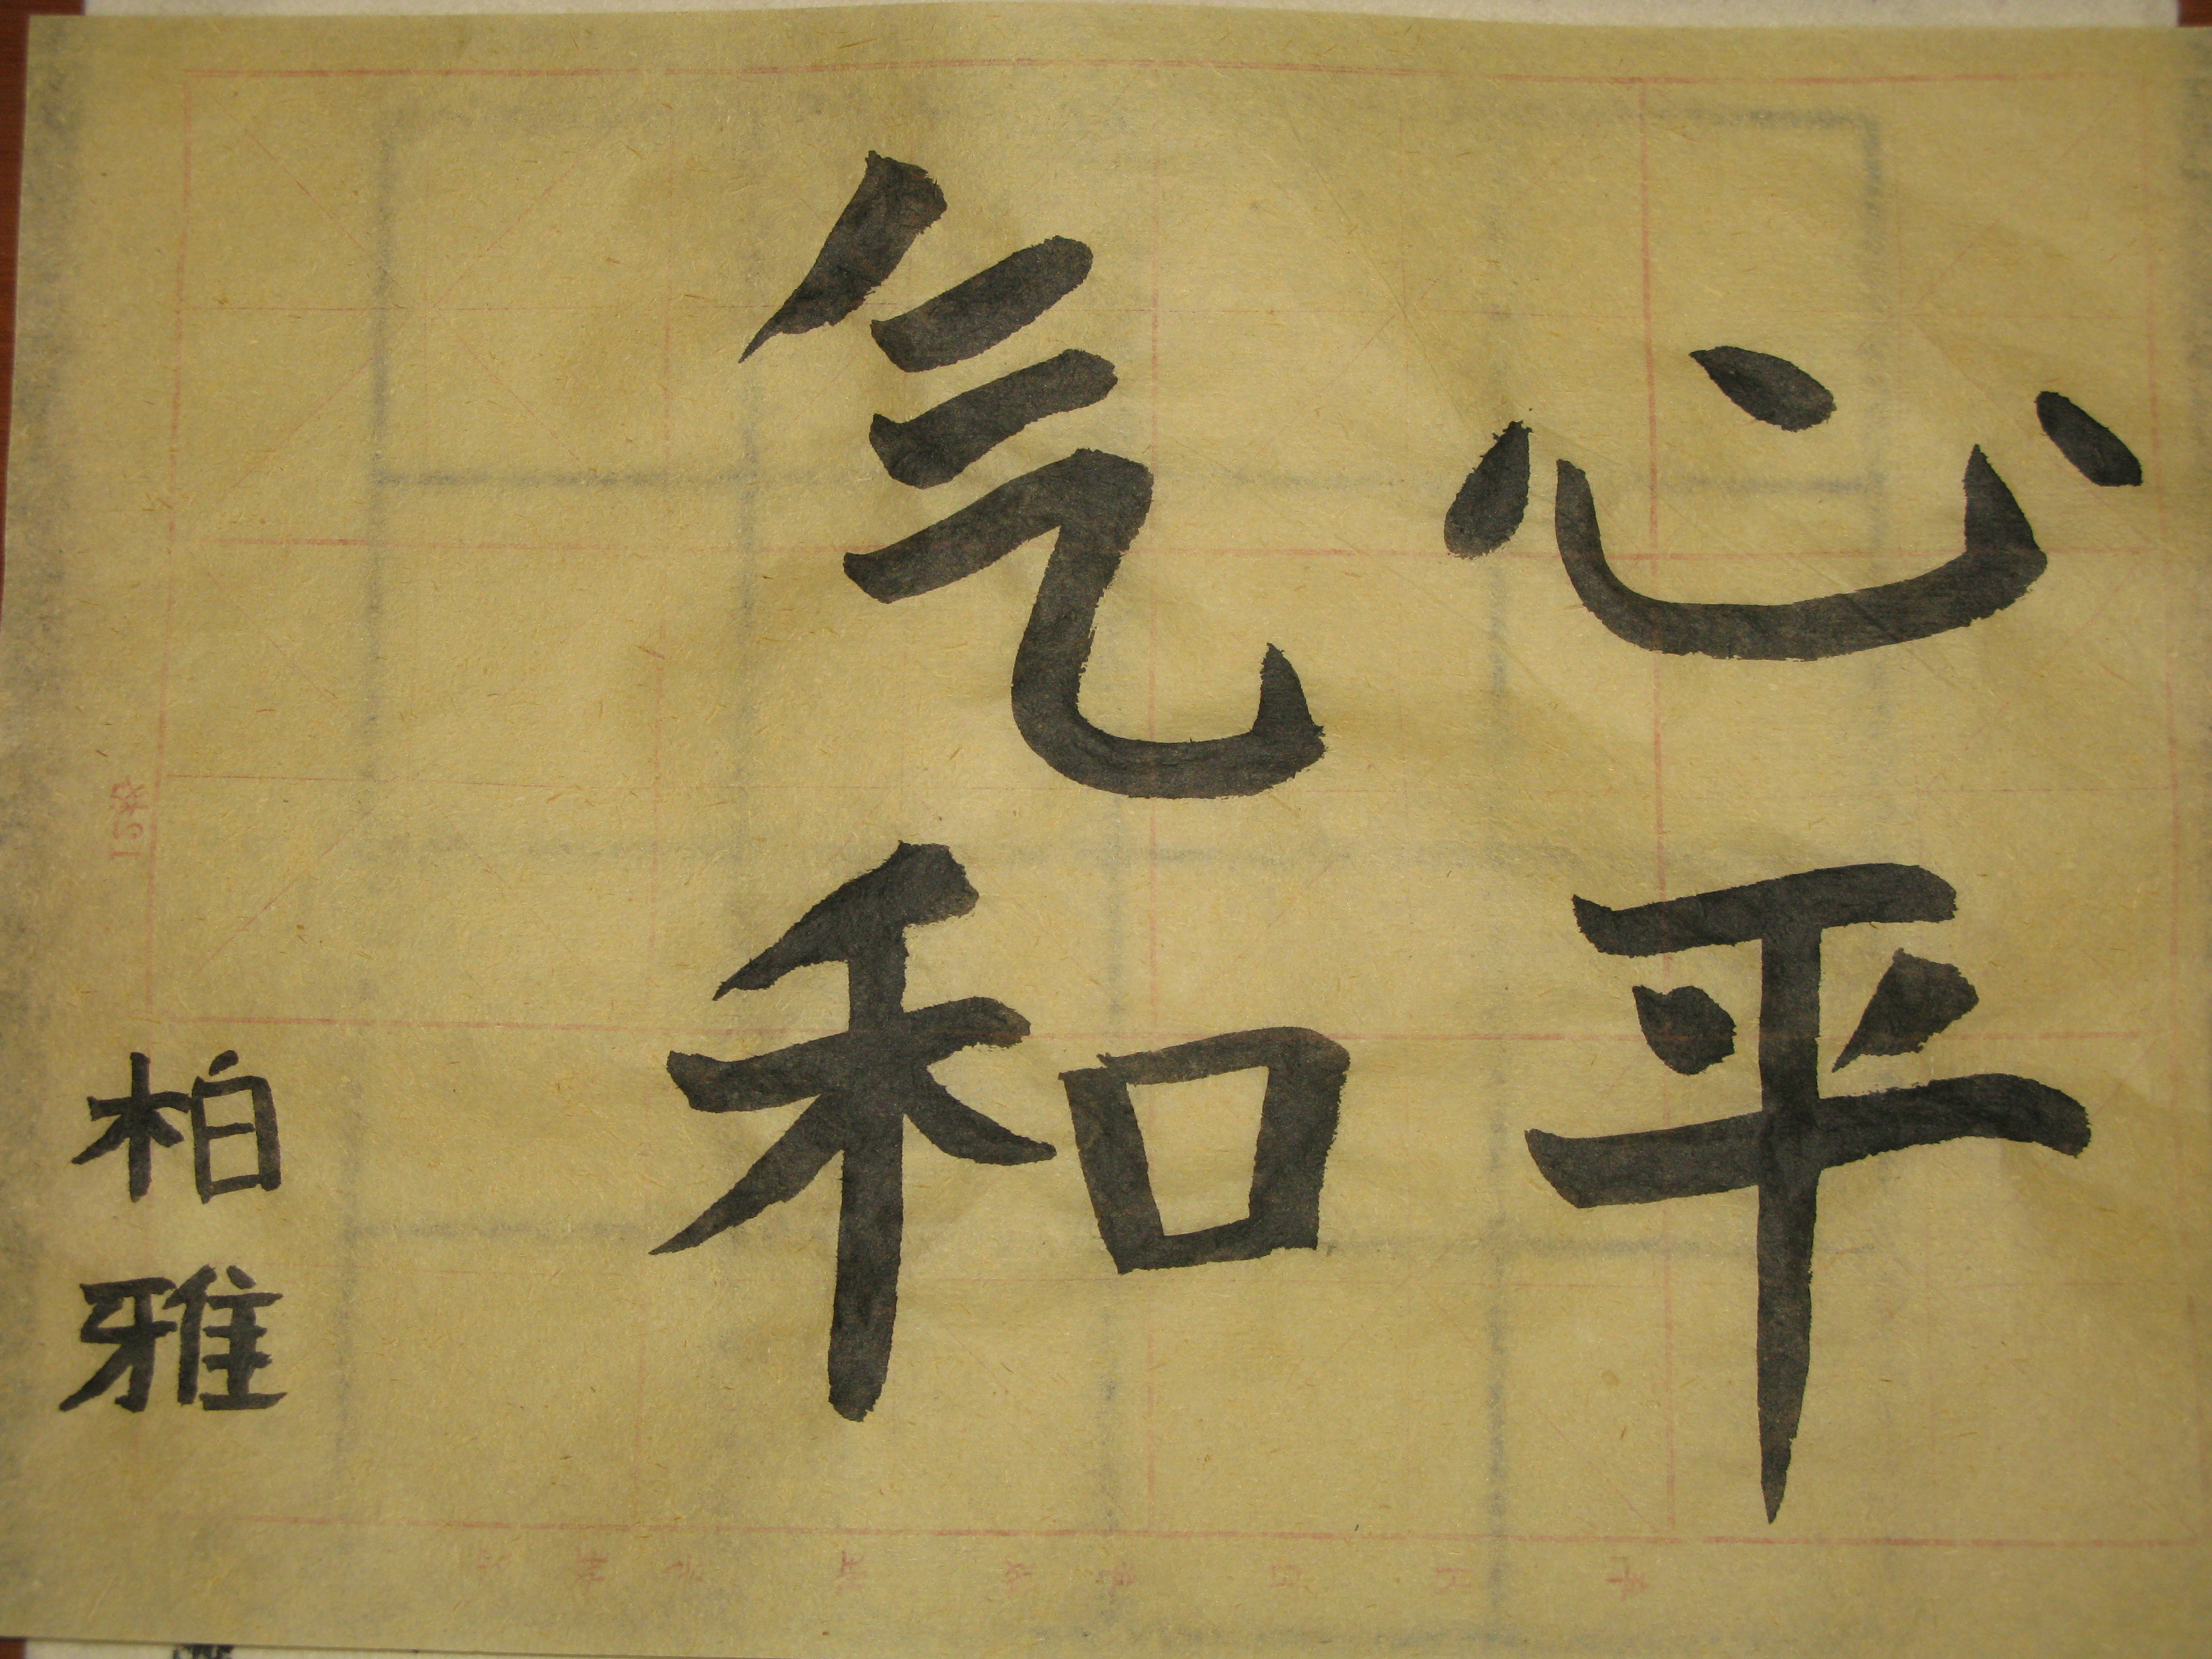 心平
气和
柏雅